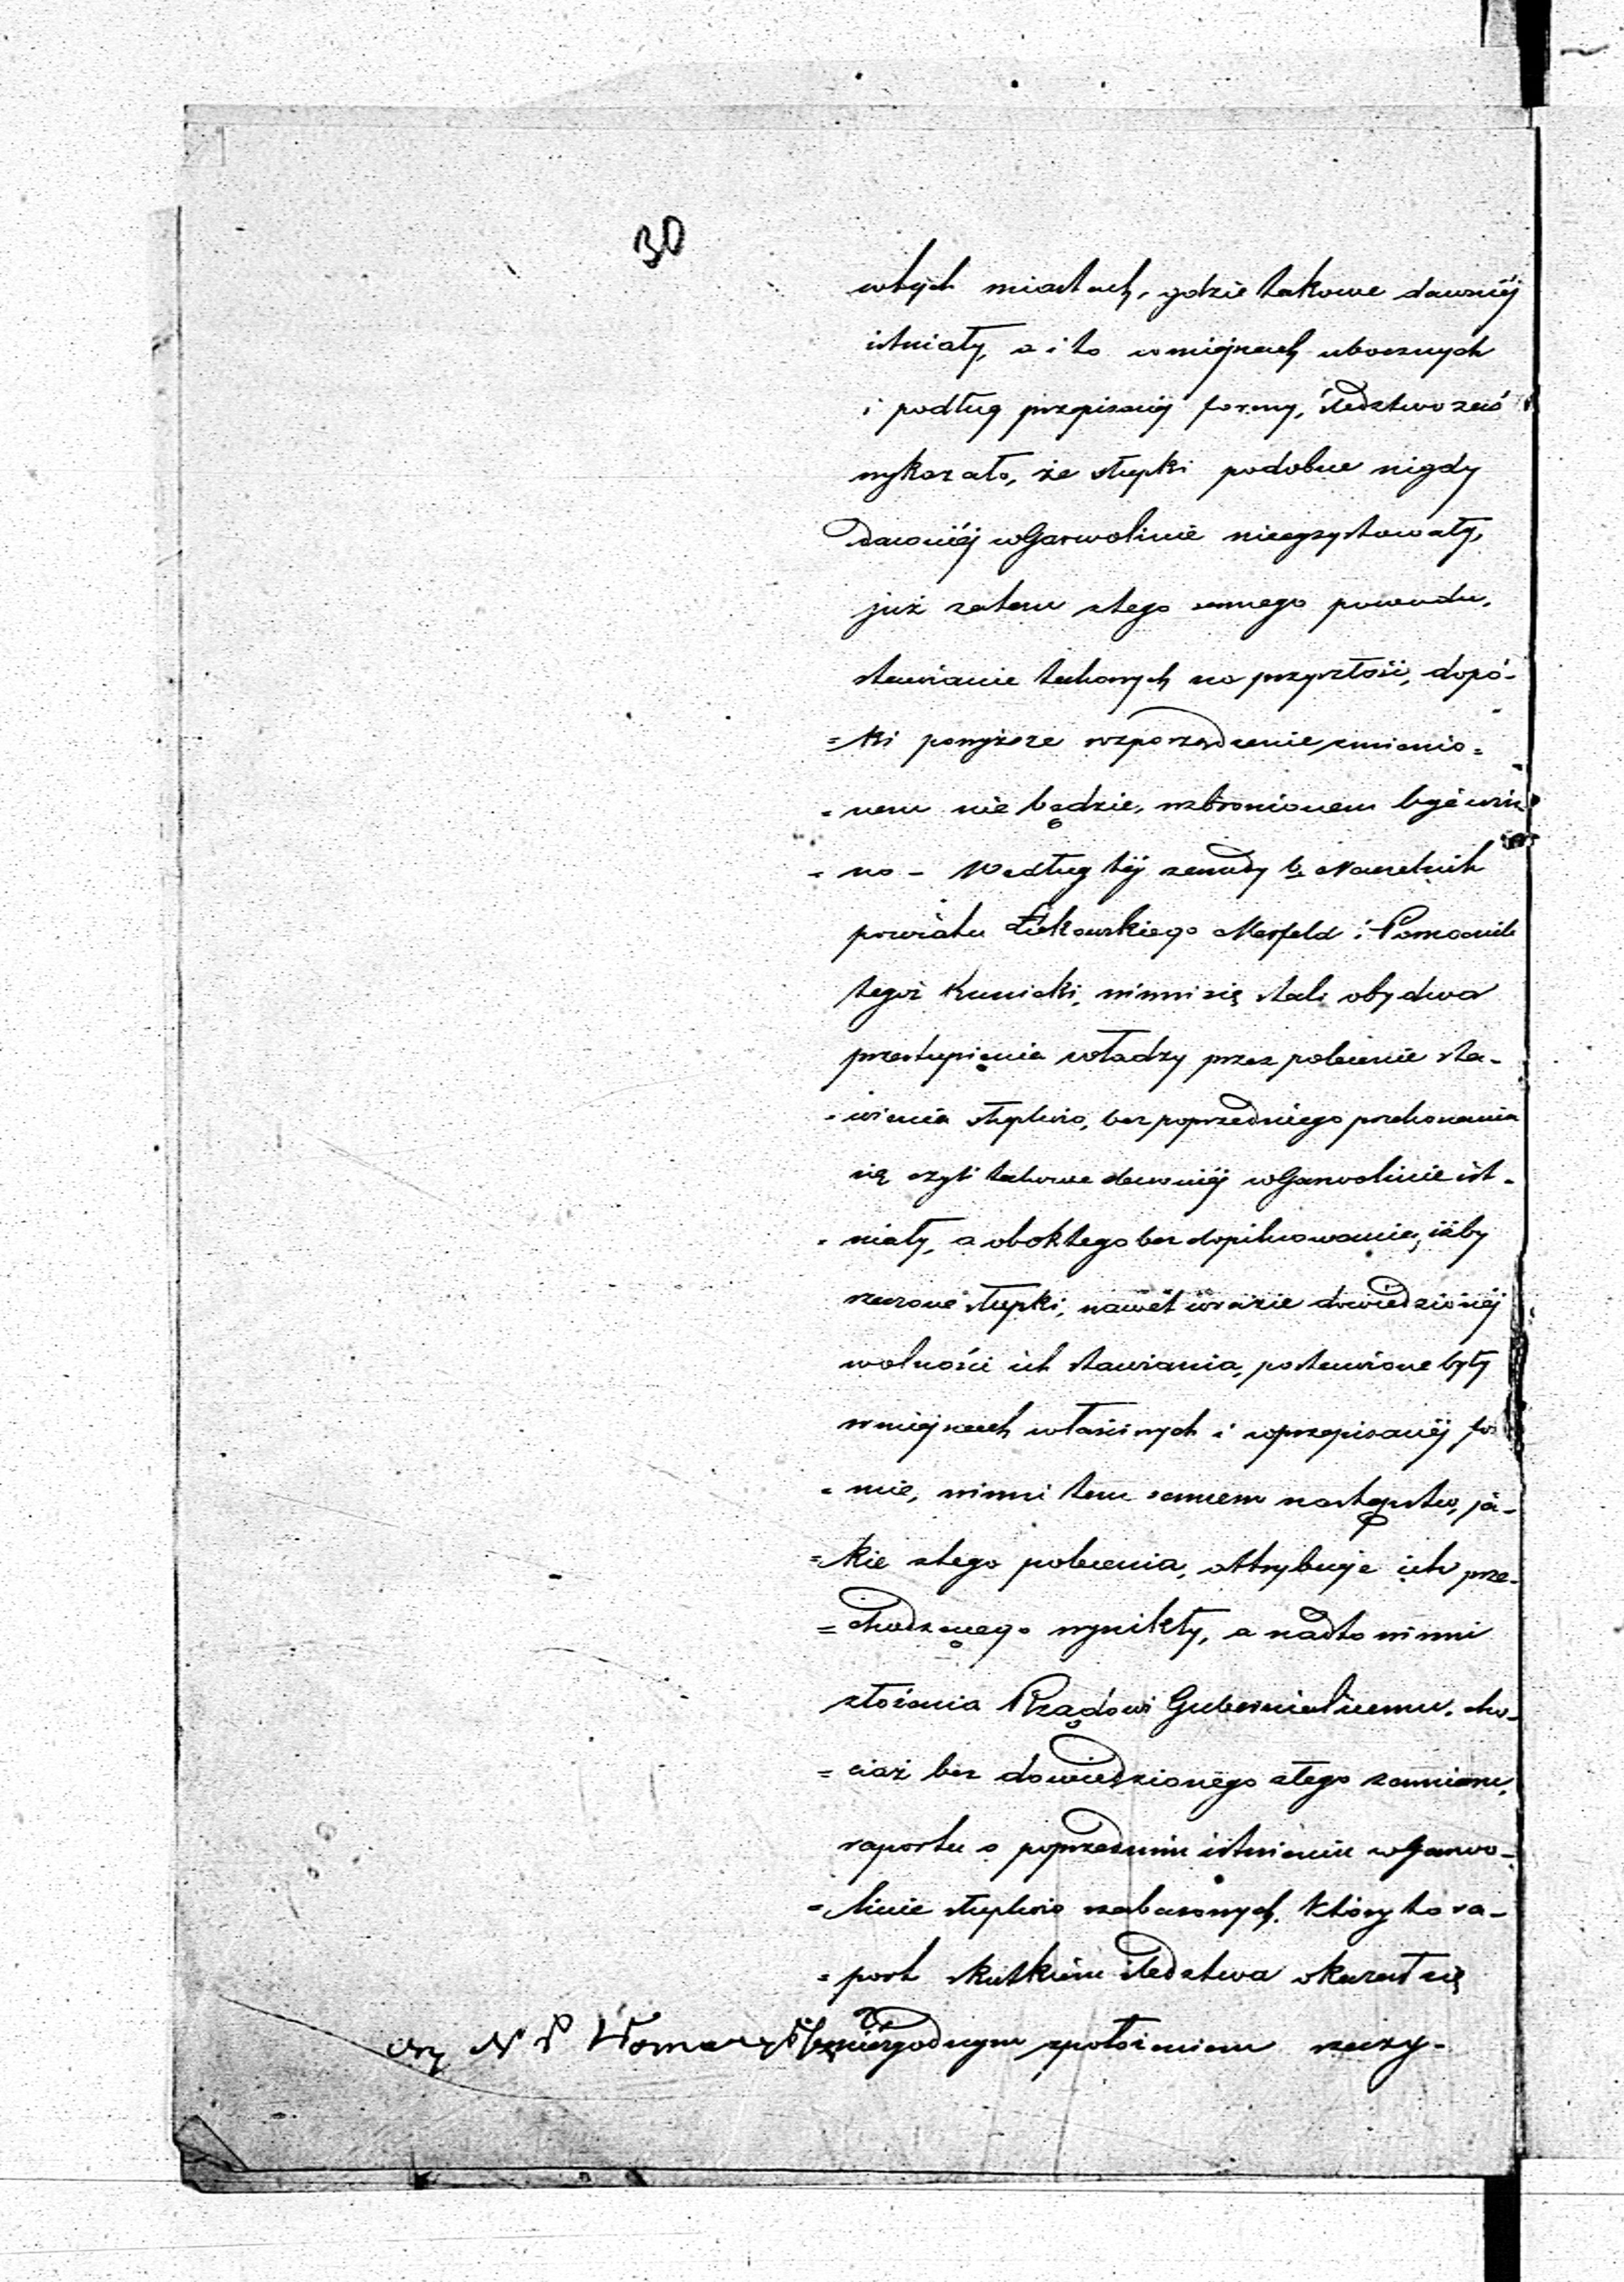 30
wtych miastach, gdzie takowe dawniéj
istniały, a i to wmiejscach ubocznych
i podług przepisanéj formy, śledztwo zaś
wykazało, że słupki podobne nigdy
dawniéj wGarwolinie nieegzystowały,
już zatem ztego samego powodu,
stawianie takowych na przyszłość, dopó-
=ki powyższe rozporządzenie zmienio=
=nem nie będzie, wzbronionem być win
=no – Według téj zasady b. Naczelnik
powiatu Łukowskiego Merfeld i Pomocnik
tegoż Kunicki, winni się stali obydwa
przestąpienia władzy przez polecenie sta-
=wienia słupków, bez poprzedniego przekonania
się czyli takowe dawniéj wGarwolinie ist-
=niały, a obok tego bez dopilnowania, iżby
rzeczone słupki, nawet wrazie dowiedzionéj
wolności ich stawiania, postawione były
wmiejscach właściwych i wprzepisanéj for
=mie, winni tem samem następstw, ja-
=kie ztego polecenia, attrybucje ich prze-
=chodzącego wynikły, a nadto winni
złożenia Rządowi Gubernialnemu, cho-
=ciaż bez dowiedzionego złego zamiaru,
raportu o poprzedniem istnieniu wGarwo-
=linie słupków żabasowych, który to ra-
=port skutkiem śledztwa okazał się
niezgodnym zpołożeniem rzeczy.